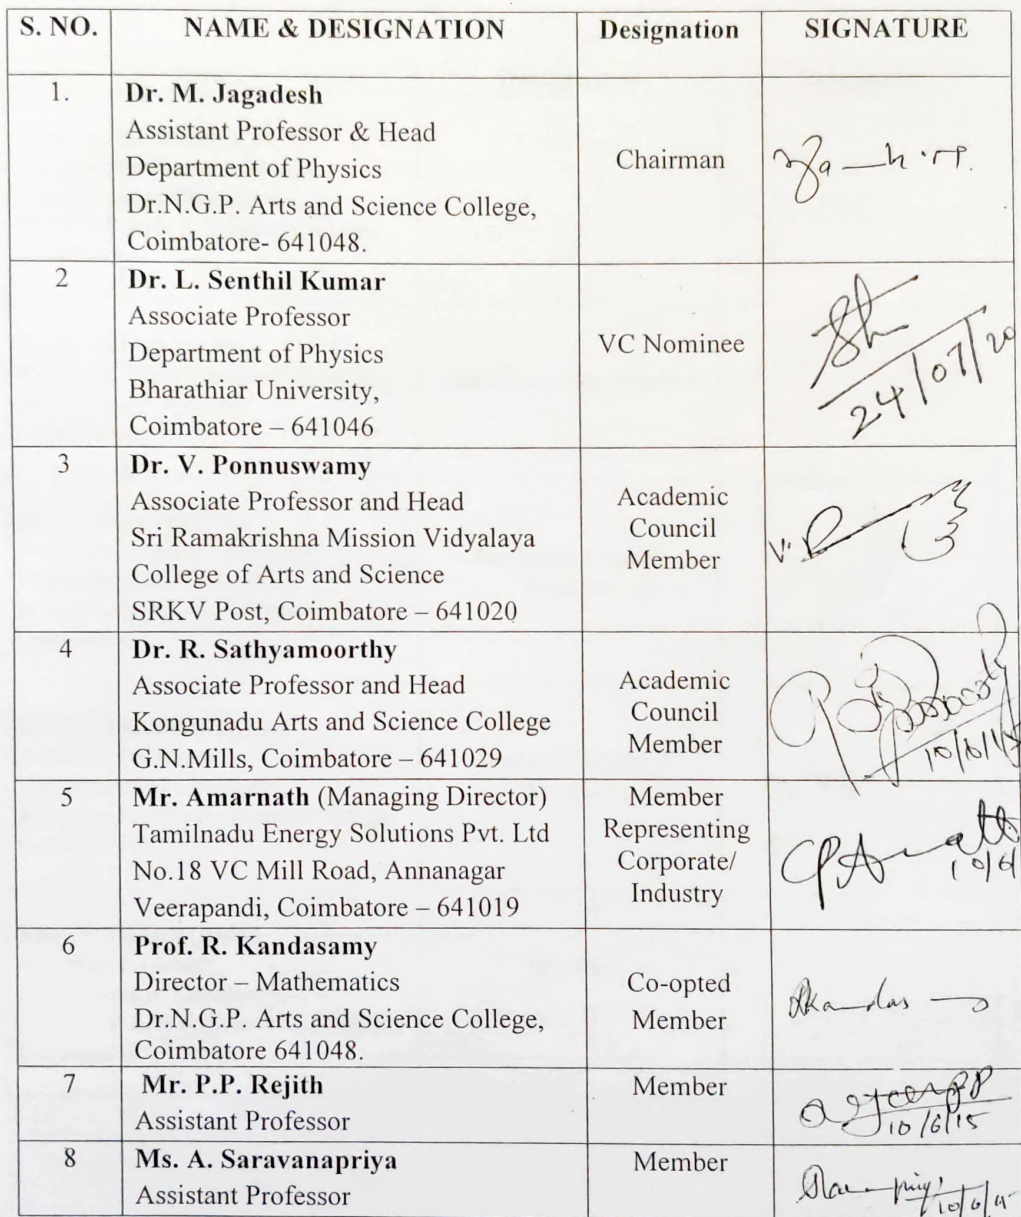 S. NO. NAME & DESIGNATION Designation SIGNATURE
1. Dr. M. Jagadesh
Assistant Professor & Head
Department of Physics
Dr.N.G.P. Arts and Science College,
Coimbatore- 641048.
Chairman
2 Dr. L. Senthil Kumar
Associate Professor
Department of Physics
Bharathiar University,
Coimbatore – 641046
VC Nominee
24/07/20
3 Dr. V. Ponnuswamy
Associate Professor and Head
Sri Ramakrishna Mission Vidyalaya
College of Arts and Science
SRKV Post, Coimbatore – 641020
Academic
Council
Member
4 Dr. R. Sathyamoorthy
Associate Professor and Head
Kongunadu Arts and Science College
G.N.Mills, Coimbatore – 641029
Academic
Council
Member
5 Mr. Amarnath (Managing Director)
Tamilnadu Energy Solutions Pvt. Ltd
No.18 VC Mill Road, Annanagar
Veerapandi, Coimbatore – 641019
Member
Representing
Corporate/
Industry
6 Prof. R. Kandasamy
Director – Mathematics
Dr.N.G.P. Arts and Science College,
Coimbatore 641048.
Co-opted
Member
7 Mr. P.P. Rejith
Assistant Professor
Member
10/6/15
8 Ms. A. Saravanapriya
Assistant Professor
Member